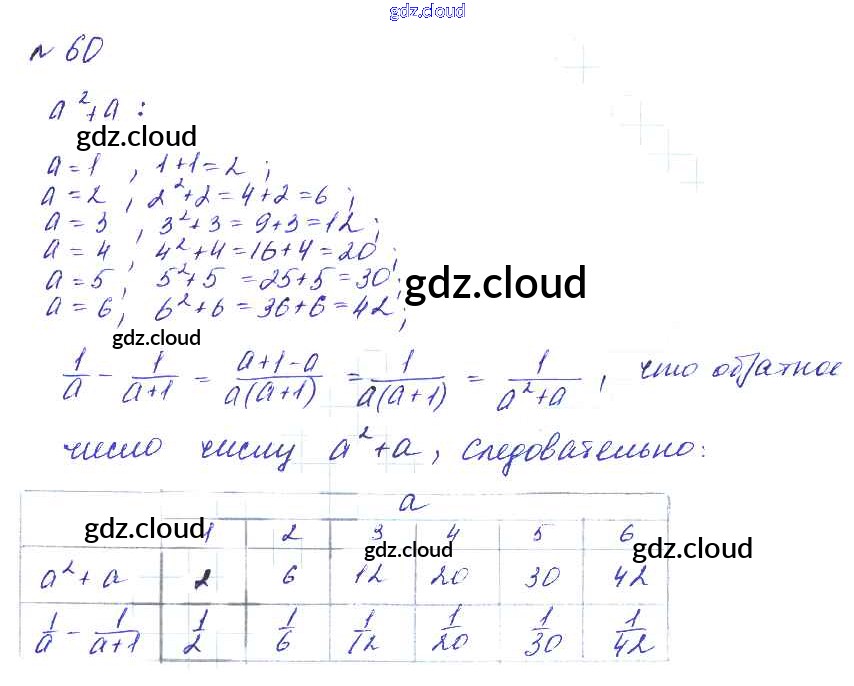 gdz.cloud
№ 60
a²+a :
gdz.cloud
a=1, 1+1=2;
a=2, 2²+2=4+2=6;
a=3, 3²+3=9+3=12;
a=4, 4²+4=16+4=20;
a=5, 5²+5=25+5=30;
gdz.cloud
a=6, 6²+6=36+6=42;
gdz.cloud
1/a - 1/(a+1) = (a+1-a)/(a(a+1)) = 1/(a(a+1)) = 1/(a²+a), что обратное
число числу a²+a, следовательно:
a
gdz.cloud 1 2 3 4 5 6
gdz.cloud gdz.cloud
a²+a 2 6 12 20 30 42
1/a - 1/(a+1) 1/2 1/6 1/12 1/20 1/30 1/42